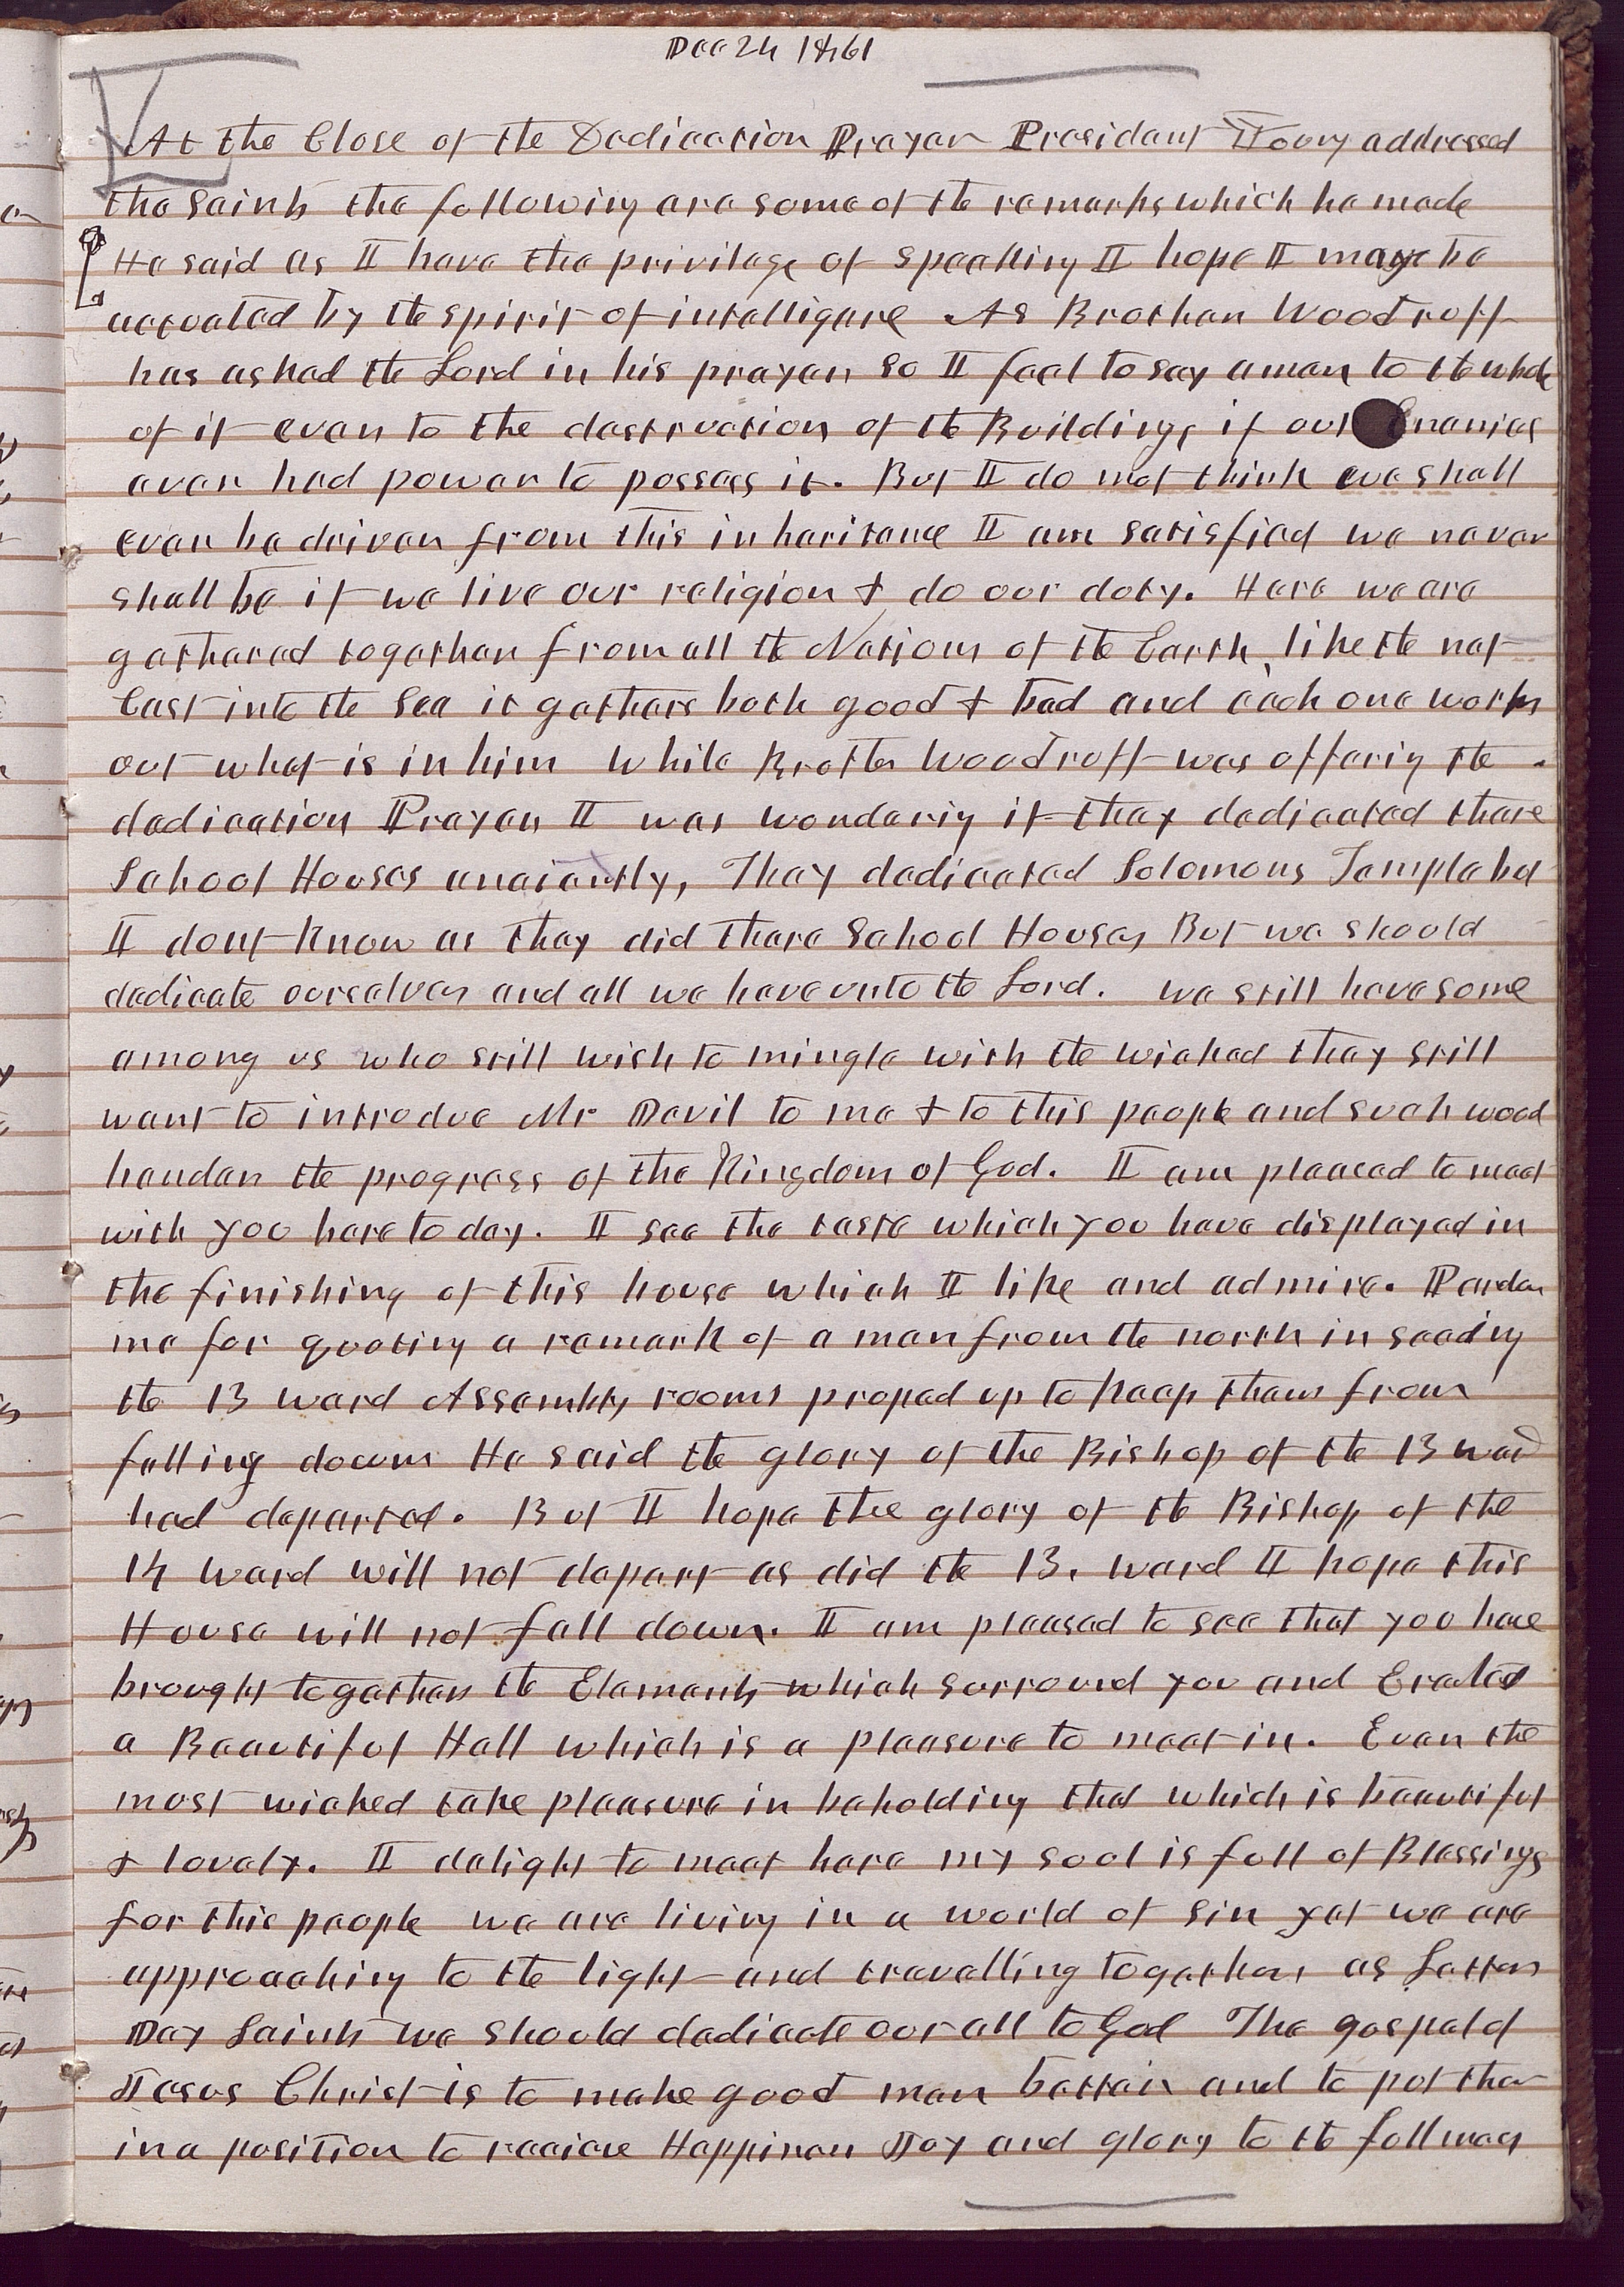 Dec 24 1861
At the Close of the Dedication Prayer President Young addressed
the saints the following are some of the remarks which he made
He said as I have the privilege of speaking I hope I may be
actuated by the spirit of intelligence As Brother Woodruff
has asked the Lord in his prayer so I feel to say amen to the whole
of it even to the destruction of the Buildings if our Enemies
ever had power to possess it. But I do not think we shall
ever be driven from this inheritance I am satisfied we never
shall be if we live our religion & do our duty. Here we are
gathered together from all the Nations of the Earth, like the net
Cast into the Sea it gathers both good & bad and each one works
out what is in him While Brother Woodruff was offering the
dedication Prayer I was wondering if they dedicated there
School Houses anciently, They dedicated Solomons Temple but
I dont know as they did there School Houses But we should
dedicate ourselves and all we have unto the Lord. we still have some
among us who still wish to mingle with the wicked they still
want to introduce Mr Devil to me & to this people and such wood
hender the progress of the Kingdom of God. I am pleased to meet
with you here to day. I see the taste which you have displayed in
the finishing of this house which I like and admire. Pardon
me for quoting a remark of a man from the north in seeing
the 13 ward Assembly rooms proped up to keep them from
falling down He said the glory of the Bishop of the 13 ward
had departed. But I hope the glory of the Bishop of the
14 ward will not depart as did the 13. ward I hope this
House will not fall down. I am pleased to see that you have
brought together the Elements which surround you and Erected
a Beautiful Hall which is a pleasure to meet in. Even the
most wicked take pleasure in beholding that which is beautiful
& lovely. I delight to meet here my soul is full of Blessings
for this people we are living in a world of sin yet we are
approaching to the light and travelling together as Latter
Day Saints we should dedicate our all to God The gospel of
Jesus Christ is to make good men better and to put them
in a position to receive Happiness Joy and glory to the fullness